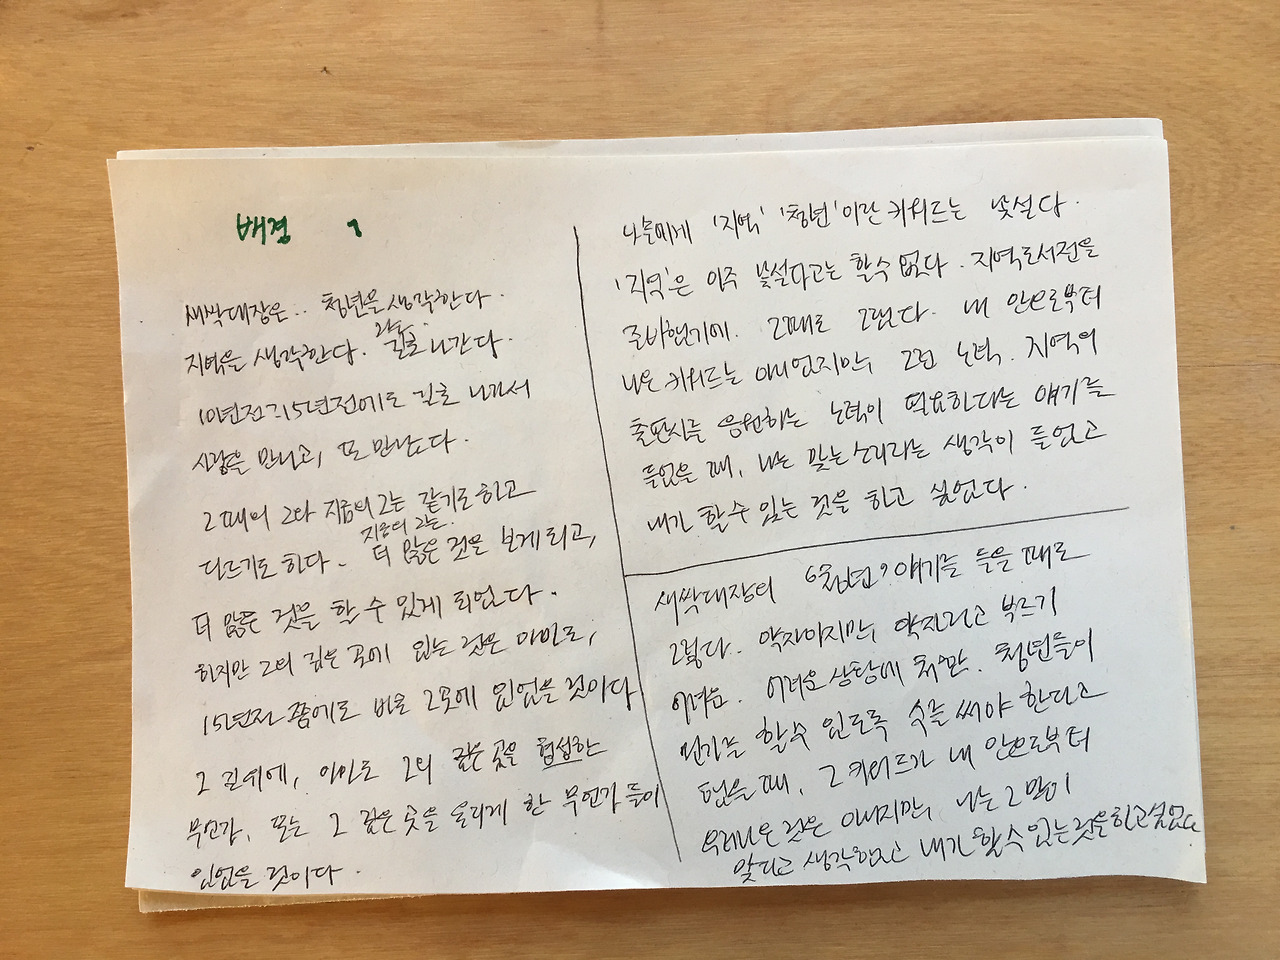 배경 1
새싹대장은.. 청년을 생각한다.
지역을 생각한다. 길로 나간다.
10년전 15년전에도 길로 나가서
사람을 만나고, 또 만났다.
그때의 그와 지금의 그는 같기도 하고
다르기도 하다. 지금의 그는. 더 많은 것을 보게 되고,
더 많은 것을 할 수 있게 되었다.
하지만 그의 깊은 곳에 있는 것은 아마도,
15년전 쯤에도 바로 그곳에 있었을 것이다
그 길위에, 아마도 그의 깊은 곳을 형성한
무언가, 또는 그 깊은 곳을 울리게 한 무언가들이
있었을 것이다.
나들에게 '지역' '청년'이란 키워드는 낯설다.
'지역'은 아주 낯설다고는 할수 없다. 지역도서전을
준비했기에. 그때도 그랬다. 내 안으로부터
나온 키워드는 아니었지만, 그런 노력. 지역의
출판사를 응원하는 노력이 필요하다는 얘기를
들었을 때, 나는 맞는 소리라는 생각이 들었고
내가 할수 있는 것을 하고 싶었다.
새싹대장의 '청년' 얘기를 들을 때도
그렇다. 약자이지만, 약자라고 부르기
어려운. 어려운 상황에 처한. 청년들이
뭔가를 할수 있도록 수를 써야 한다고
했을 때, 그 키워드가 내 안으로부터
우러나온 것은 아니지만, 나는 그 말이
맞다고 생각했고 내가 할수 있는 것을 하고싶었다